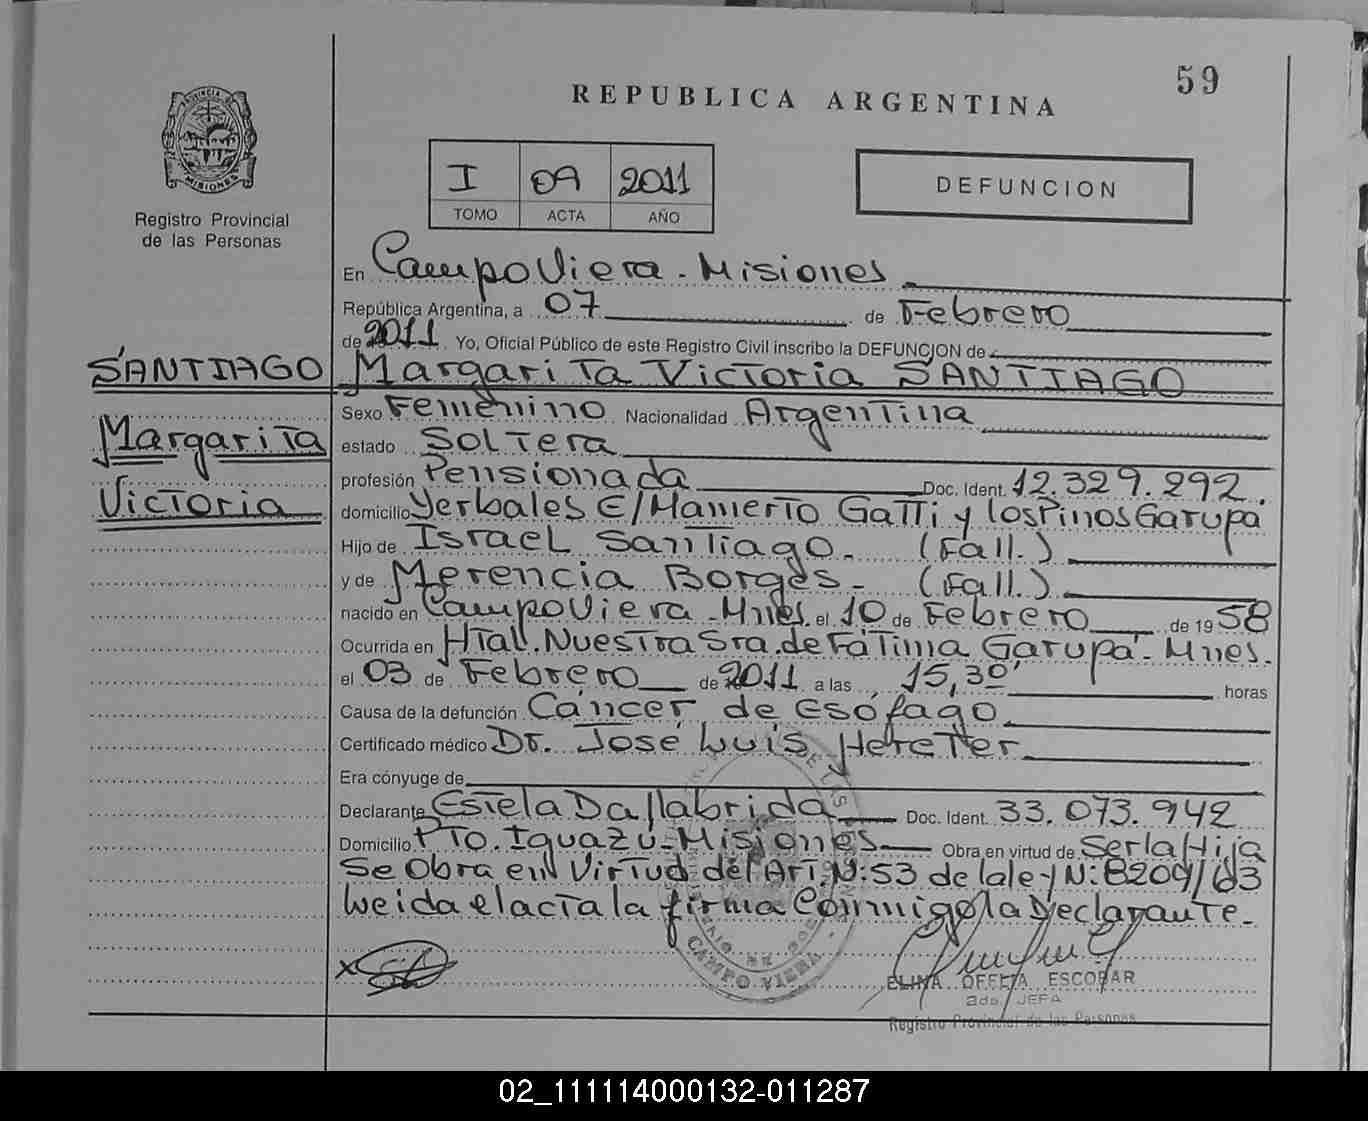 59
REPUBLICA ARGENTINA
PROVINCIA DE
MISIONES
Registro Provincial
de las Personas
I 09 2011
TOMO ACTA AÑO
DEFUNCION
En Campo Viera - Misiones
República Argentina, a 07 de Febrero
de 2011 Yo, Oficial Público de este Registro Civil inscribo la DEFUNCION de
SANTIAGO Margarita Victoria SANTIAGO
Sexo Femenino Nacionalidad Argentina
Margarita
estado Soltera
profesión Pensionada Doc. Ident. 12.329.292.
Victoria
domicilio Yerbales E/Mamerto Gatti y los Pinos Garupá
Hijo de Israel Santiago - (Fall.)
y de Merencia Borges - (Fall.)
nacido en Campo Viera - Mnes. el 10 de Febrero de 1958
Ocurrida en Htal. Nuestra Sra. de Fátima Garupá - Mnes.
el 03 de Febrero de 2011 a las 15,30 horas
Causa de la defunción Cáncer de esófago
Certificado médico Dr. José Luis Hereter
Era cónyuge de
Declarante Estela Dallabrida Doc. Ident. 33.073.942
Domicilio Pto. Iguazú - Misiones Obra en virtud de Ser la Hija
Se Obra en Virtud del Art. N: 53 de la ley N: 8204/63
Leida el acta la firma Conmigo la Declarante.
CAMPO VIERA
ELINA OFELIA ESCOBAR
2da. JEFA
Registro Provincial de las Personas
02_111114000132-011287